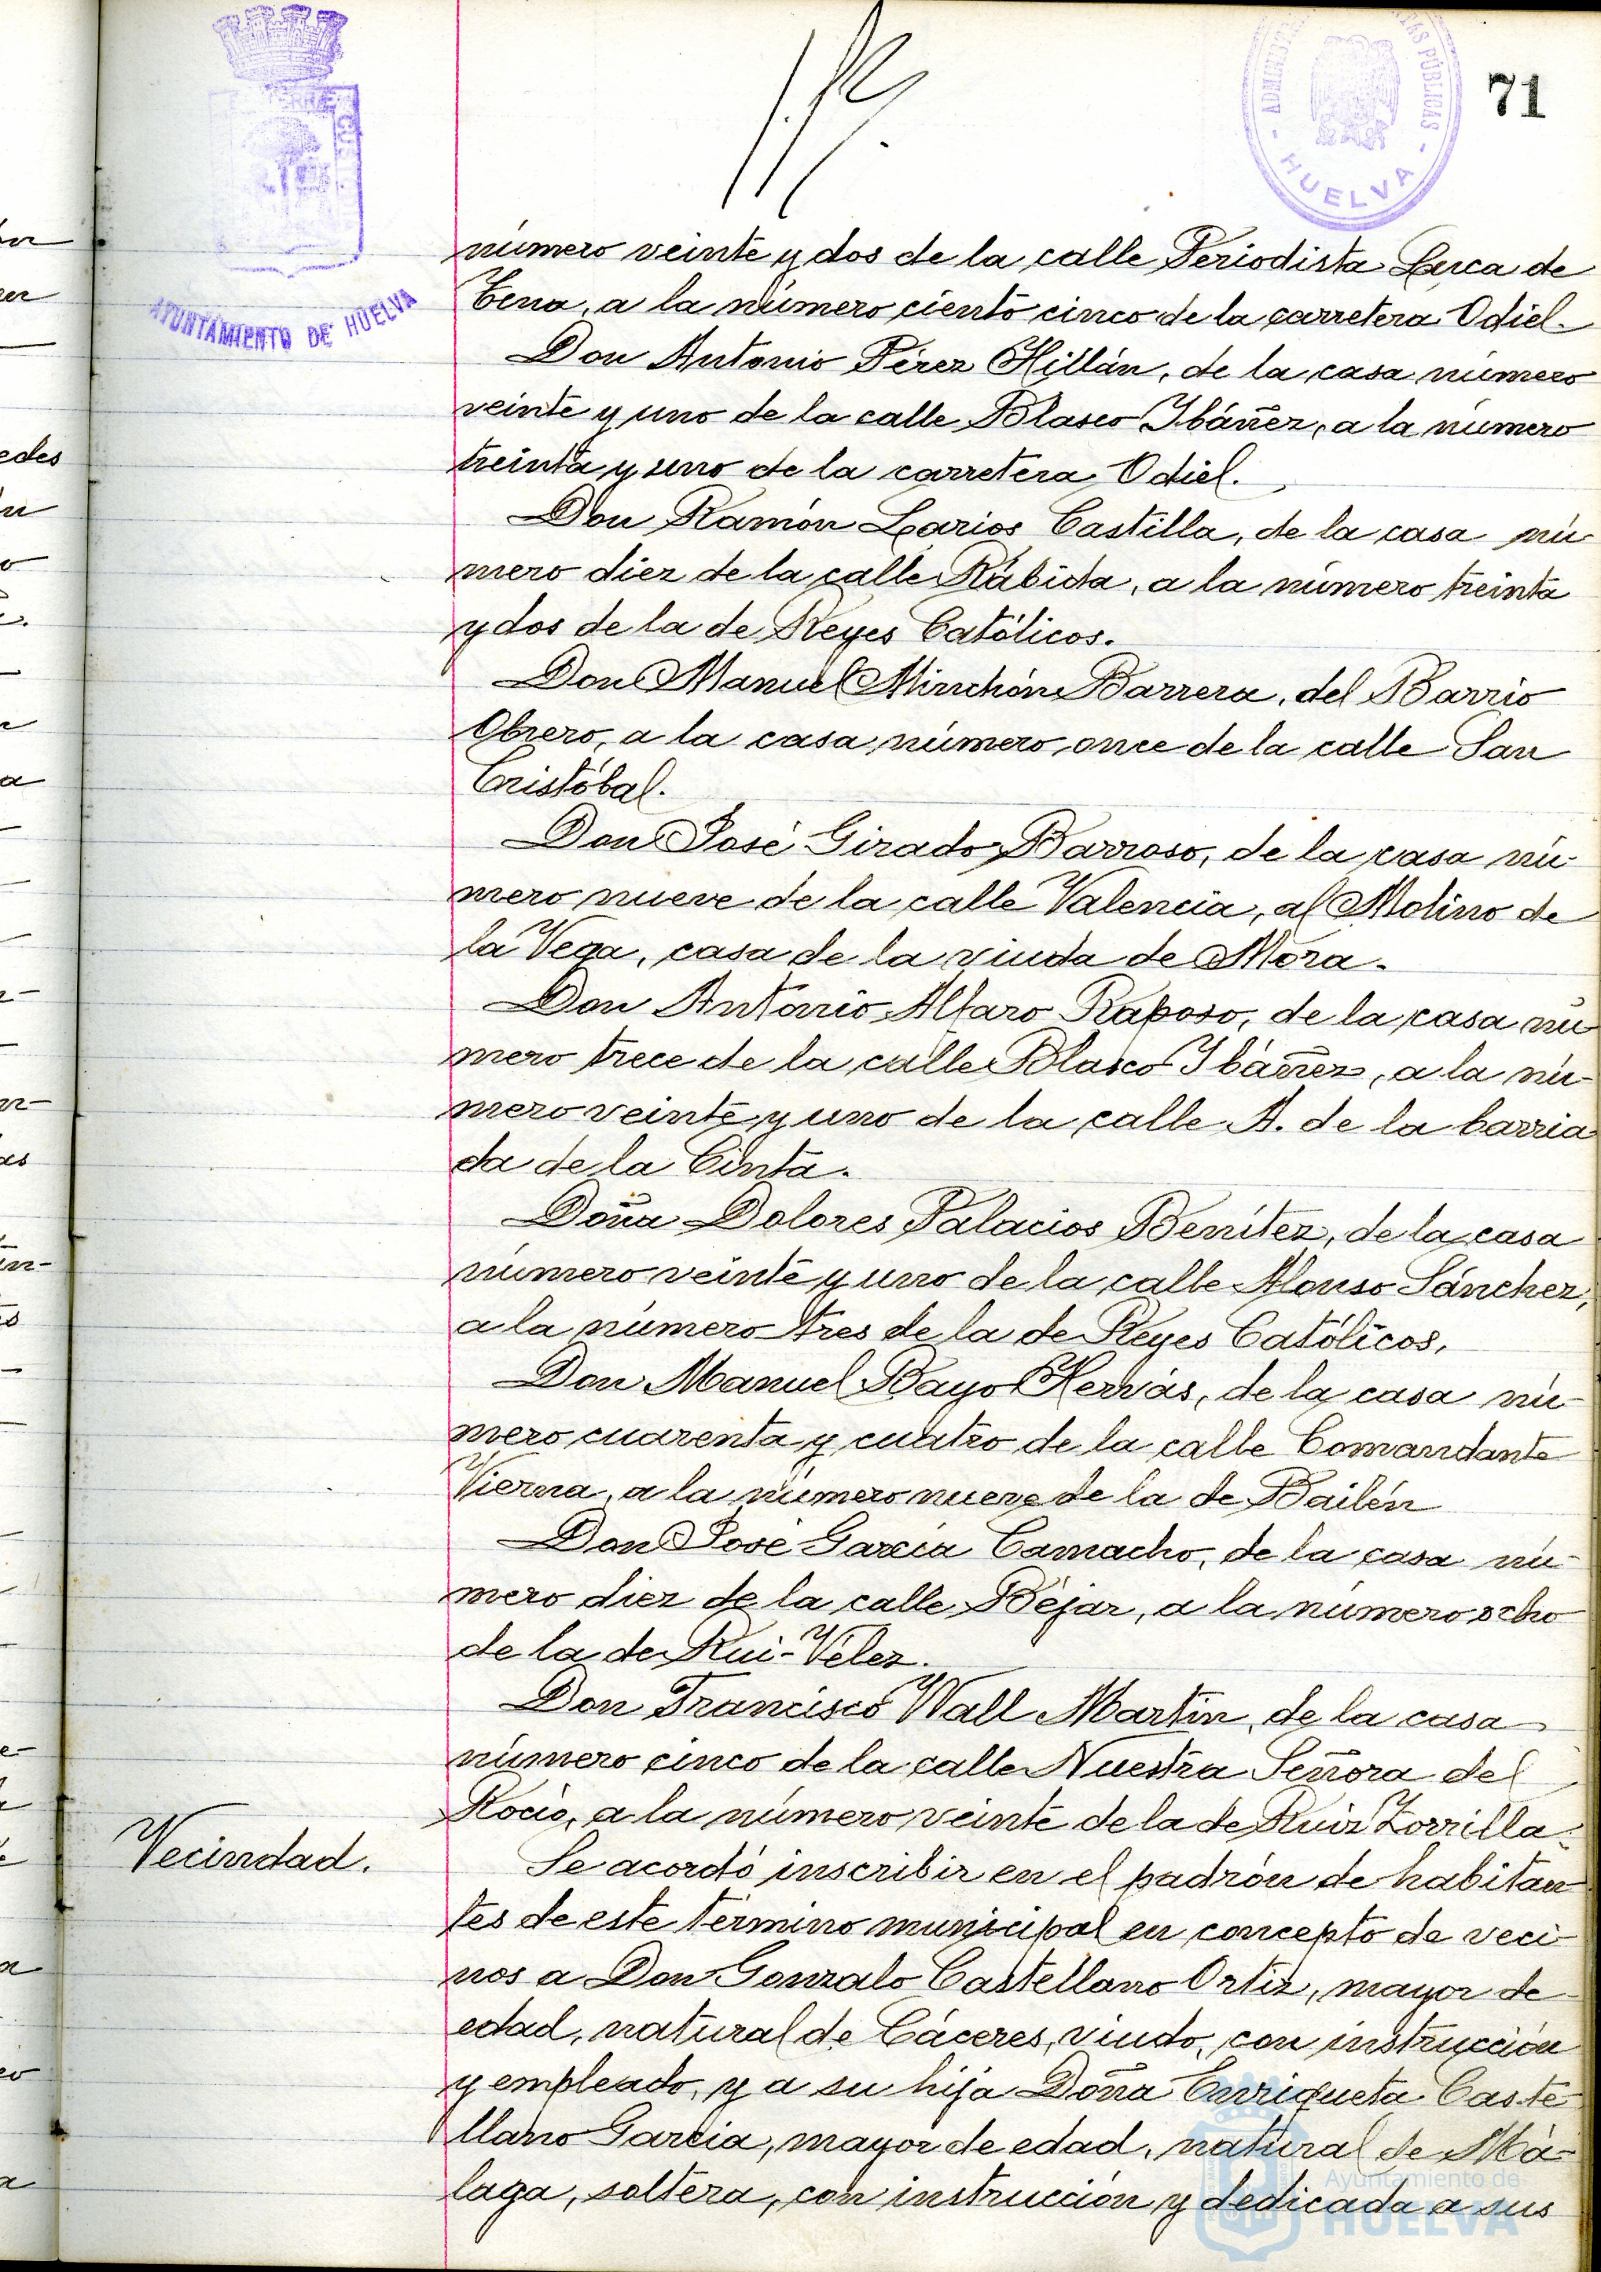 71
ADMINISTRA
IAS PÚBLICAS
- HUELVA -
AYUNTAMIENTO DE HUELVA
número veinte y dos de la calle Periodista Luca de
Tena, a la número ciento cinco de la carretera Odiel.
Don Antonio Pérez Hillán, de la casa número
veinte y uno de la calle Blasco Ibáñez, a la número
treinta y uno de la carretera Odiel.
Don Ramón Larios Castilla, de la casa nú-
mero diez de la calle Rábida, a la número treinta
y dos de la de Reyes Católicos.
Don Manuel Minchón Barrera, del Barrio
Obrero, a la casa número once de la calle San
Cristóbal.
Don José Girado Barroso, de la casa nú-
mero nueve de la calle Valencia, al Molino de
la Vega, casa de la viuda de Mora.
Don Antonio Alfaro Raposo, de la casa nú
mero trece de la calle Blasco Ibáñez, a la nú-
mero veinte y uno de la calle A. de la barria
da de la Cinta.
Doña Dolores Palacios Benítez, de la casa
número veinte y uno de la calle Alonso Sánchez,
a la número tres de la de Reyes Católicos.
Don Manuel Bayo Hervás, de la casa nú-
mero cuarenta y cuatro de la calle Comandante
Vierna, a la número nueve de la de Bailén
Don José García Camacho, de la casa nú-
mero diez de la calle Béjar, a la número ocho
de la de Rui-Vélez.
Don Francisco Wall Martín, de la casa
número cinco de la calle Nuestra Señora del
Rocío, a la número veinte de la de Ruiz Zorrilla.
Vecindad.
Se acordó inscribir en el padrón de habitan
tes de este término municipal en concepto de veci-
nos a Don Gonzalo Castellano Ortiz, mayor de
edad, natural de Cáceres, viudo, con instrucción
y empleado, y a su hija Doña Enriqueta Caste-
llano García, mayor de edad, natural de Má-
laga, soltera, con instrucción y dedicada a sus
Ayuntamiento de
HUELVA